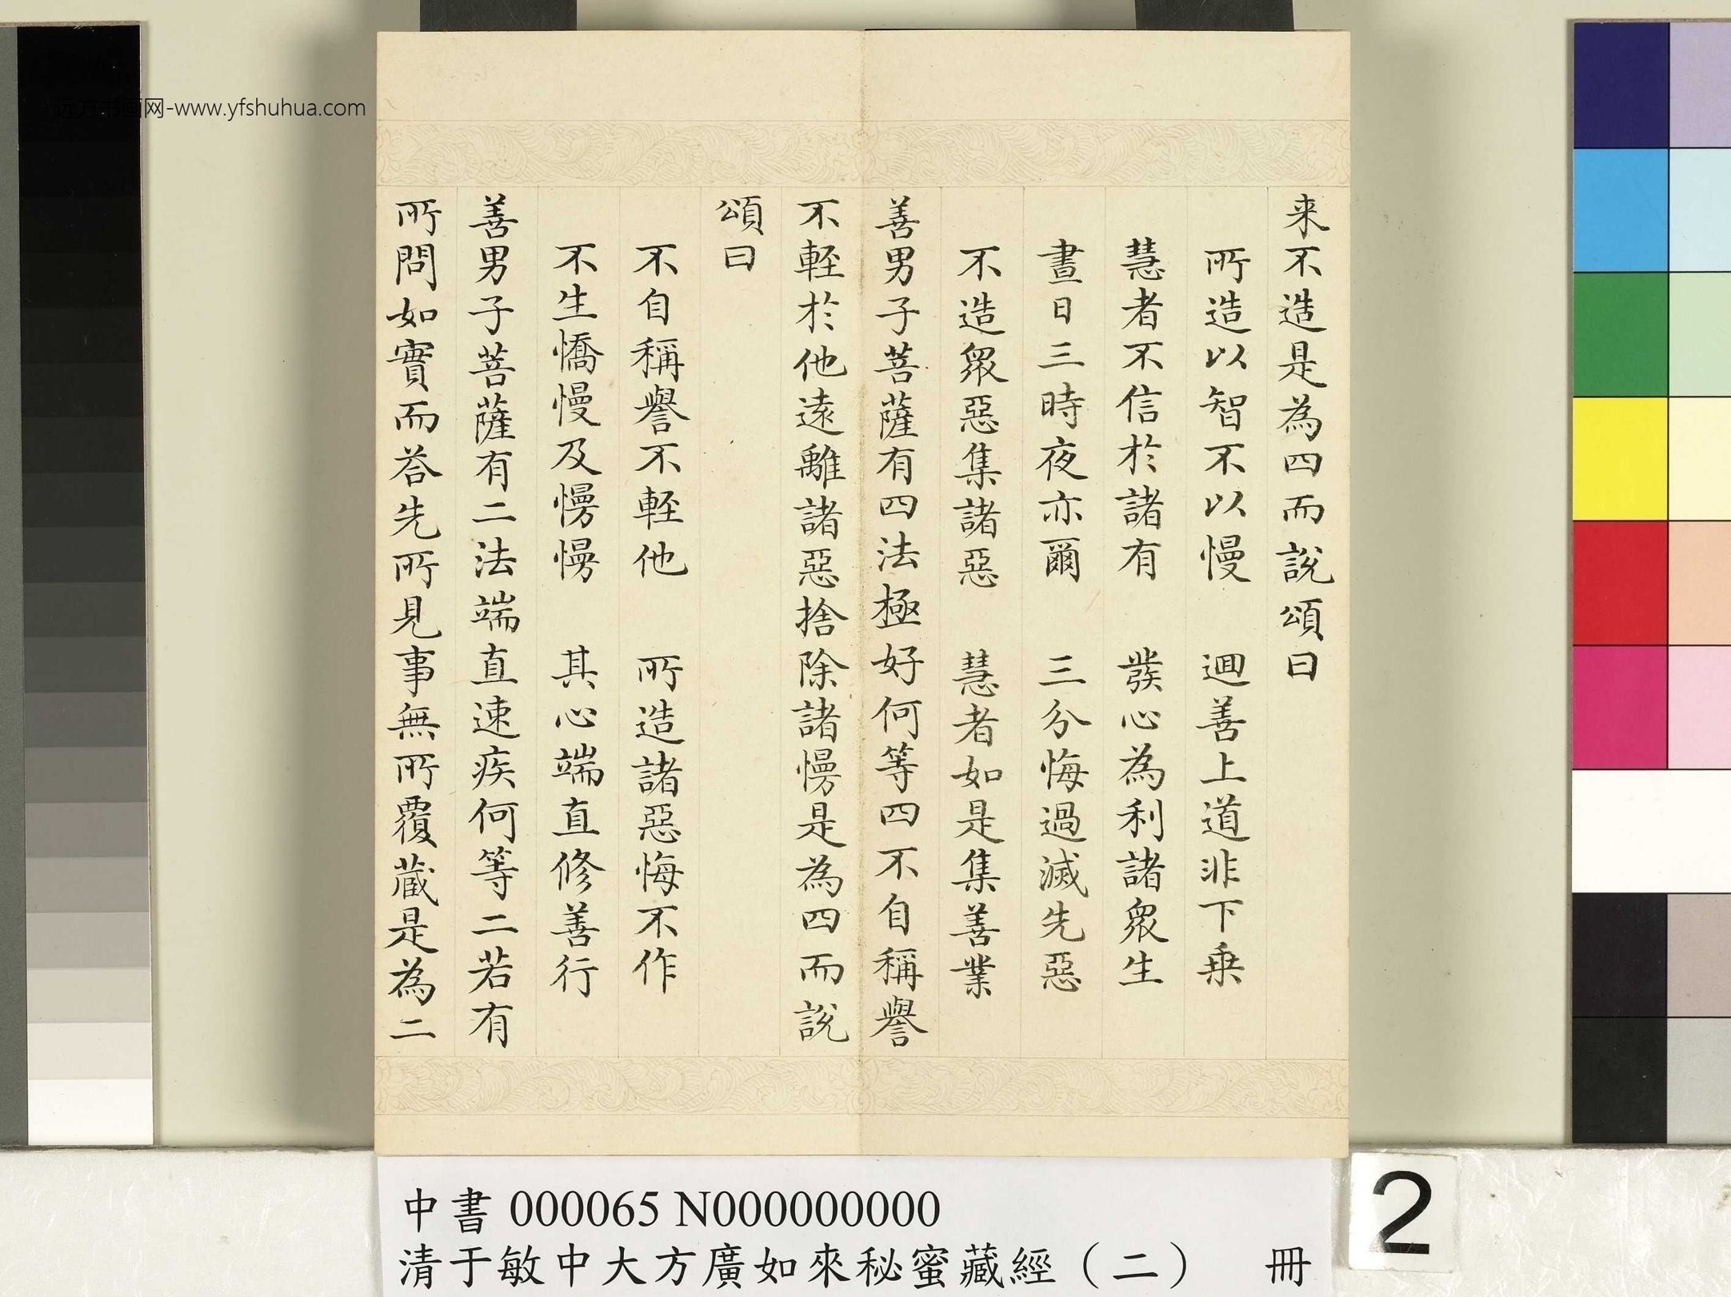 来不造是為四而說頌曰
所造以智不以慢　迴善上道非下乗
慧者不信於諸有　發心為利諸衆生
晝日三時夜亦爾　三分悔過滅先惡
不造衆惡集諸惡　慧者如是集善業
善男子菩薩有四法極好何等四不自稱譽
不輕於他遠離諸惡捨除諸慢是為四而說
頌曰
不自稱譽不輕他　所造諸惡悔不作
不生憍慢及慢慢　其心端直修善行
善男子菩薩有二法端直速疾何等二若有
所問如實而荅先所見事無所覆藏是為二
远方书画网-www.yfshuhua.com
中書 000065 N000000000
清于敏中大方廣如來秘蜜藏經（二）　冊
2